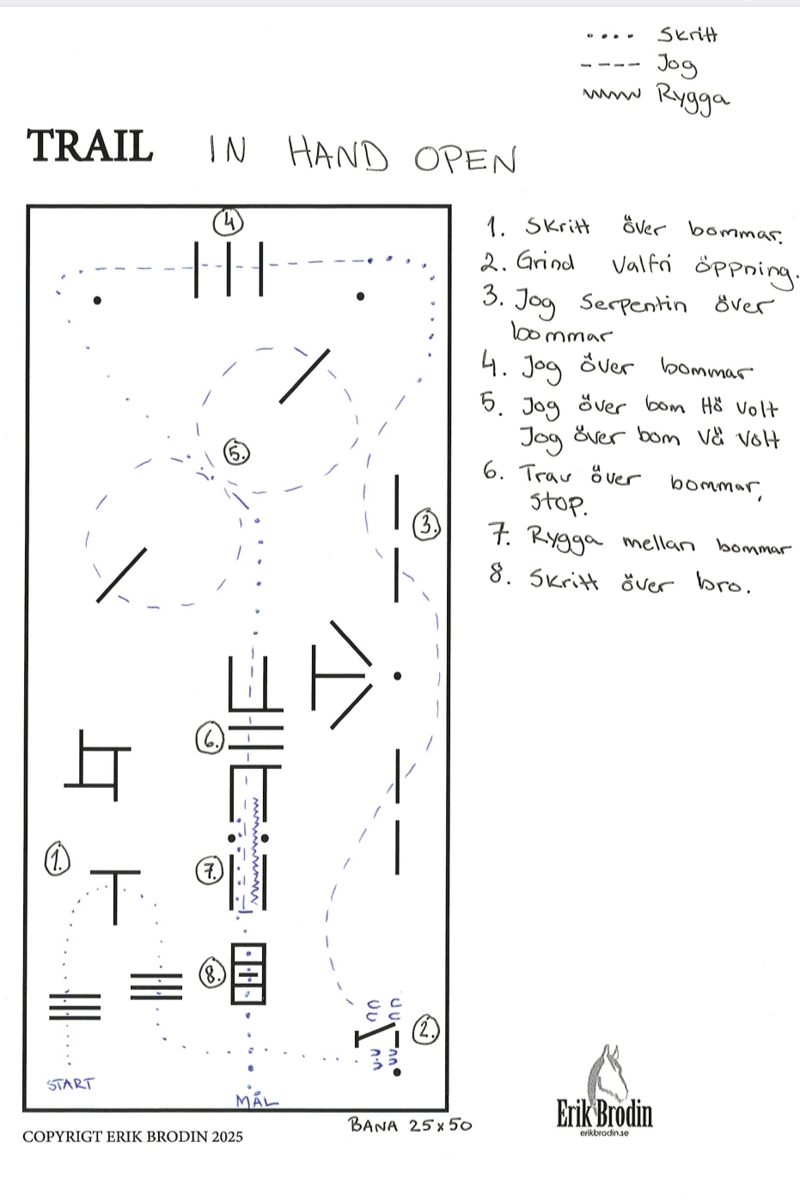 Skritt
Jog
Rygga
TRAIL IN HAND OPEN
1. Skritt över bommar.
2. Grind Valfri öppning.
3. Jog Serpentin över
bommar
4. Jog över bommar
5. Jog över bom Hö Volt
Jog över bom Vä Volt
6. Trav över bommar,
Stop.
7. Rygga mellan bommar
8. Skritt över bro.
4
5.
3.
6.
1.
7.
8.
2.
START
MÅL
BANA 25x50
COPYRIGT ERIK BRODIN 2025
Erik Brodin
erikbrodin.se